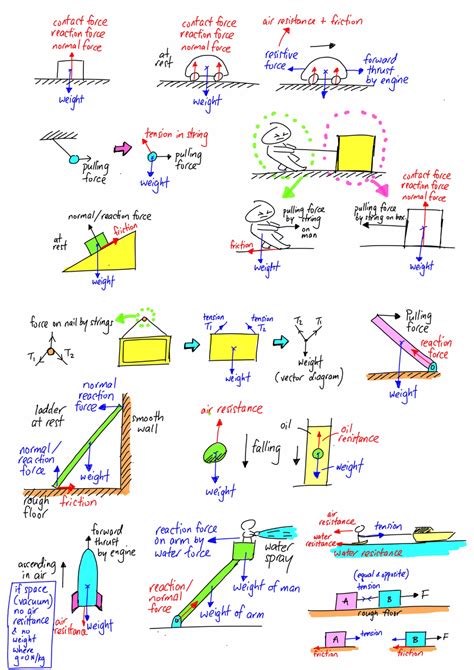 contact force
reaction force
normal force
weight
at
rest
contact force
reaction force
normal force
weight
air resistance + friction
resistive
force
forward
thrust
by engine
weight
pulling
force
tension in string
pulling
force
weight
contact force
reaction force
normal force
normal/reaction force
friction
at
rest
weight
pulling force
by string
on
man
friction
weight
pulling force
by string on box
weight
force on nail by strings
T1
T2
tension
T1
tension
T2
weight
T2
T1
weight
(vector diagram)
Pulling
force
reaction
force
weight
normal
reaction
force
ladder
at rest
smooth
wall
normal/
reaction
force
weight
rough
floor
friction
air resistance
falling
weight
oil
oil
resistance
weight
forward
thrust
by engine
ascending
in air
if space
(vacuum)
no air
resistance
& no
weight
where
g=0N/kg
air
resistance
weight
reaction force
on arm by
water force
water
spray
reaction/
normal
force
weight of man
weight of arm
air
resistance
tension
water resistance
water resistance
(equal & opposite)
tension
A
B
F
rough floor
tension
A
B
F
friction
friction